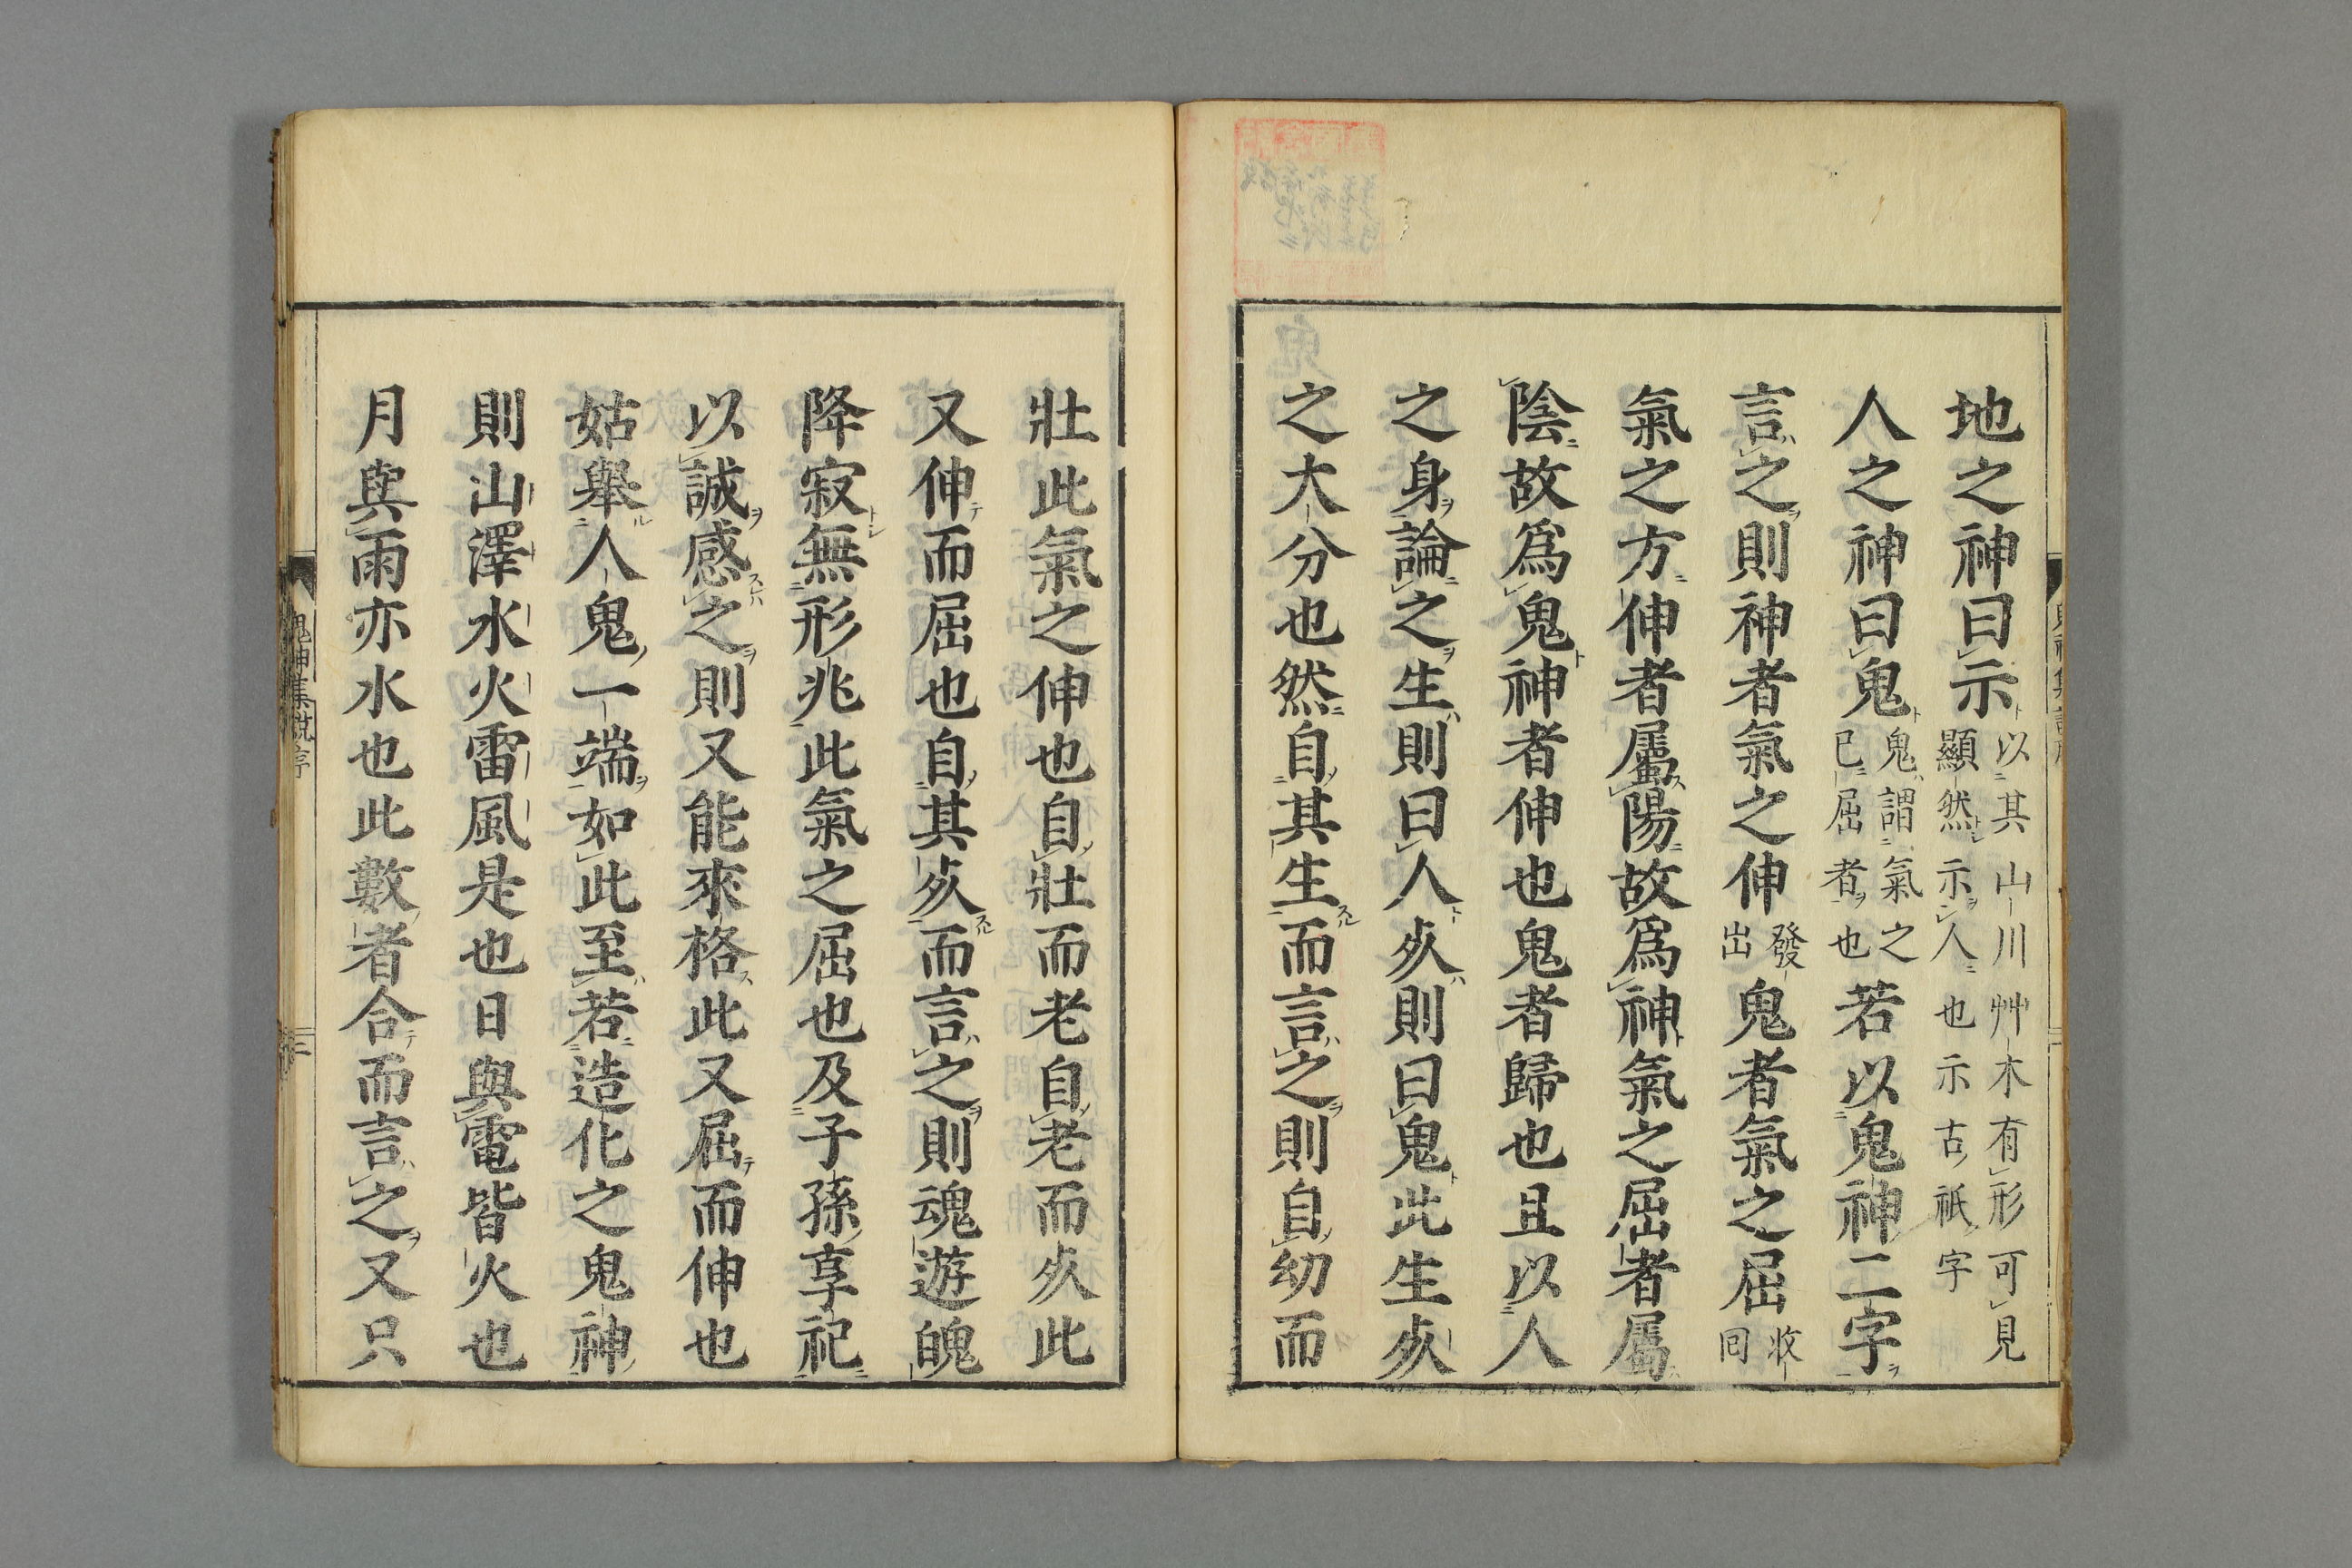 地之神曰示以其山川艸木有形可見顯然示人也示古祇字
人之神曰鬼鬼謂氣之已屈者也若以鬼神二字
言之則神者氣之伸發出鬼者氣之屈收回
氣之方伸者屬陽故爲神氣之屈者屬
陰故爲鬼神者伸也鬼者歸也且以人
之身論之生則曰人歿則曰鬼此生歿
之大分也然自其生而言之則自幼而
壯此氣之伸也自壯而老自老而歿此
又伸而屈也自其歿而言之則魂遊魄
降寂無形兆此氣之屈也及子孫享祀
以誠感之則又能來格此又屈而伸也
姑舉人鬼一端如此至若造化之鬼神
則山澤水火雷風是也日與電皆火也
月與雨亦水也此數者合而言之又只
鬼神集說序